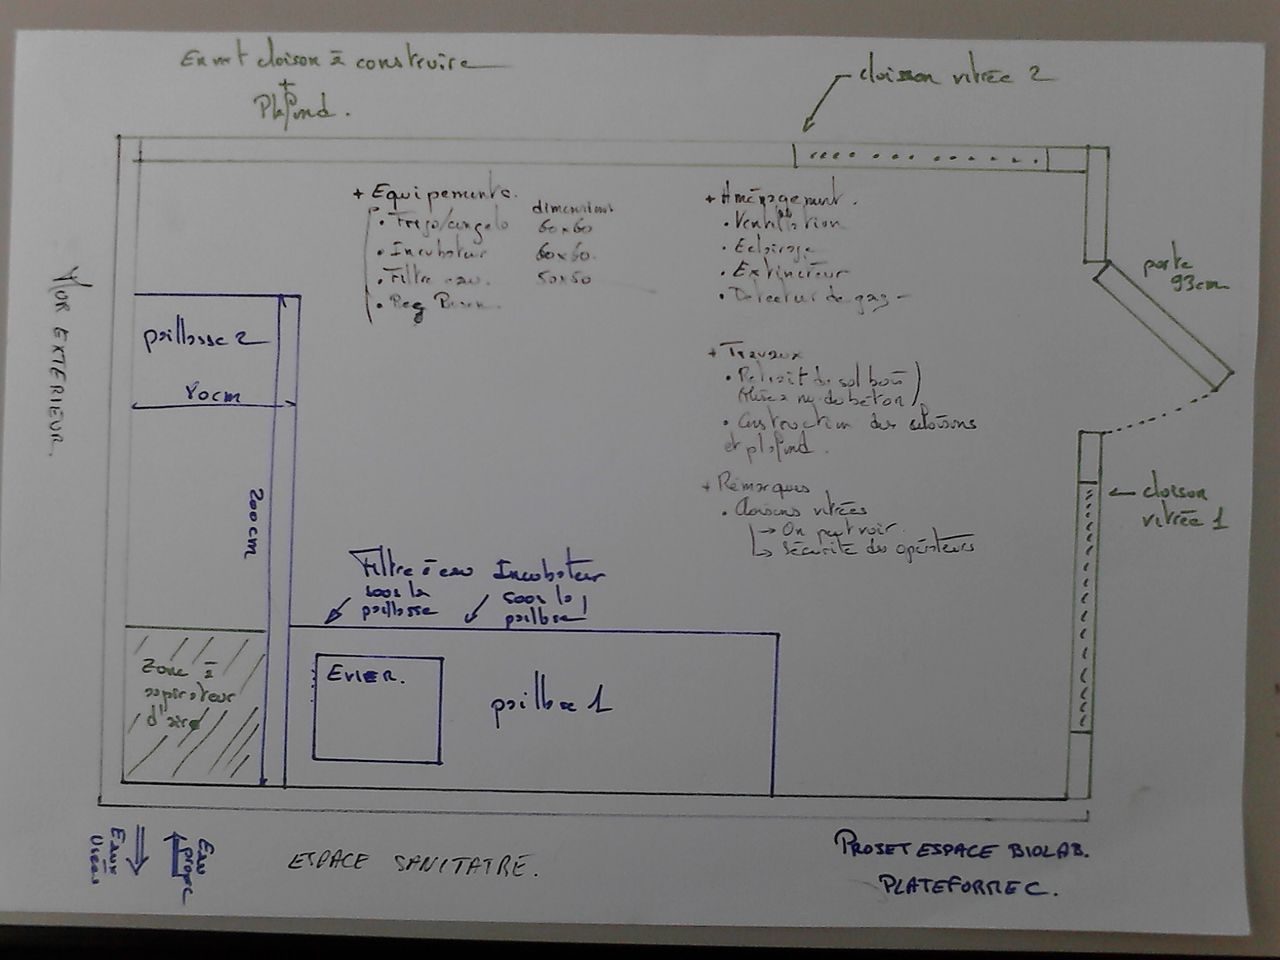 En vert cloison à construire
+
Plafond.
cloison vitrée 2
+ Equipements.
dimensions
• Frigo/congelo 60x60
• Incubateur 60x60.
• Filtre eau. 50x50
+ Aménagement.
• Ventilation
• Eclairage
• Extincteur
• Detecteur de gaz -
porte
93cm
MUR EXTERIEUR.
paillasse 2
80cm
200cm
+ Travaux
• Retrait du sol bois
(Mise à nu du béton)
• Construction des cloisons
et plafond.
+ Remarques
• Cloisons vitrées
→ On peut voir.
→ Sécurité des opérateurs
cloison
vitrée 1
Filtre à eau
sous la
paillasse
Incubateur
sous la
paillasse
Zone à
aspirateur
d'aire
EVIER.
paillasse 1
Eaux
Usées
Eau
propre
ESPACE SANITAIRE.
PROJET ESPACE BIOLAB.
PLATEFORME C.